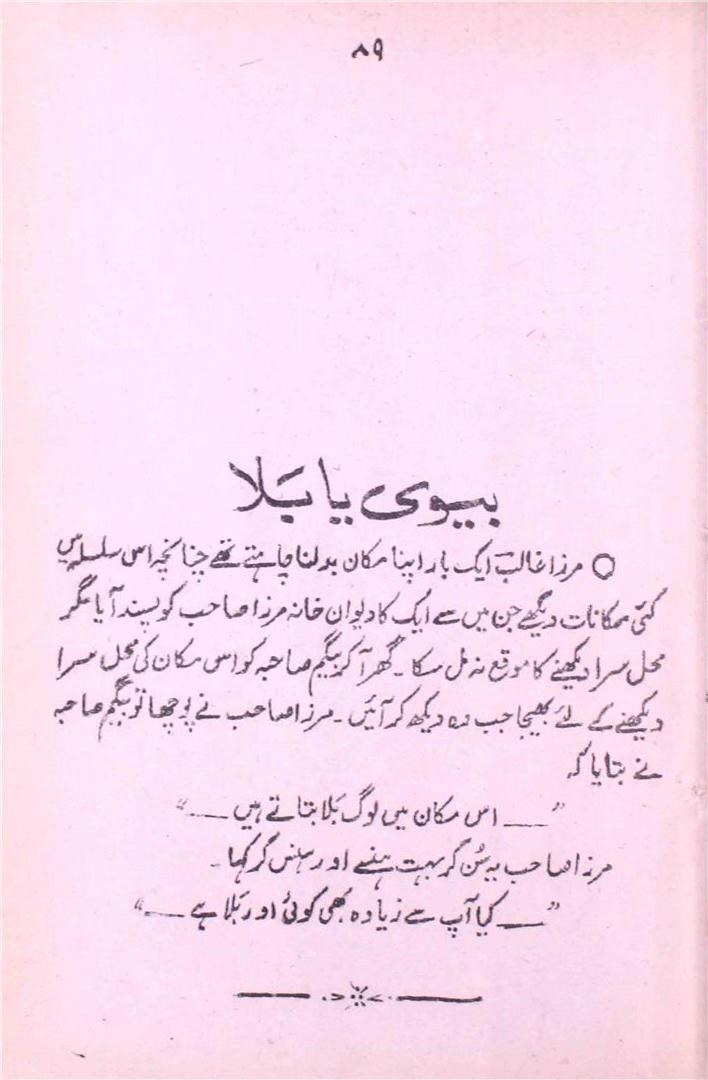 ۸۹
بیوی یا بَلا
○ مرزا غالبؔ ایک بار اپنا مکان بدلنا چاہتے تھے چنانچہ اس سلسلہ میں
کئی مکانات دیکھے جن میں سے ایک کا دیوان خانہ مرزا صاحب کو پسند آیا مگر
محل سرا دیکھنے کا موقع نہ مل سکا۔ گھر آکر بیگم صاحبہ کو اس مکان کی محل سرا
دیکھنے کے لئے بھیجا جب وہ دیکھ کر آئیں۔ مرزا صاحب نے پوچھا تو بیگم صاحبہ
نے بتایا کہ
”—— اس مکان میں لوگ بَلا بتاتے ہیں ——“
مرزا صاحب یہ سُن کر بہت ہنسے اور ہنس کر کہا۔
”—— کیا آپ سے زیادہ بھی کوئی اور بَلا ہے ——“